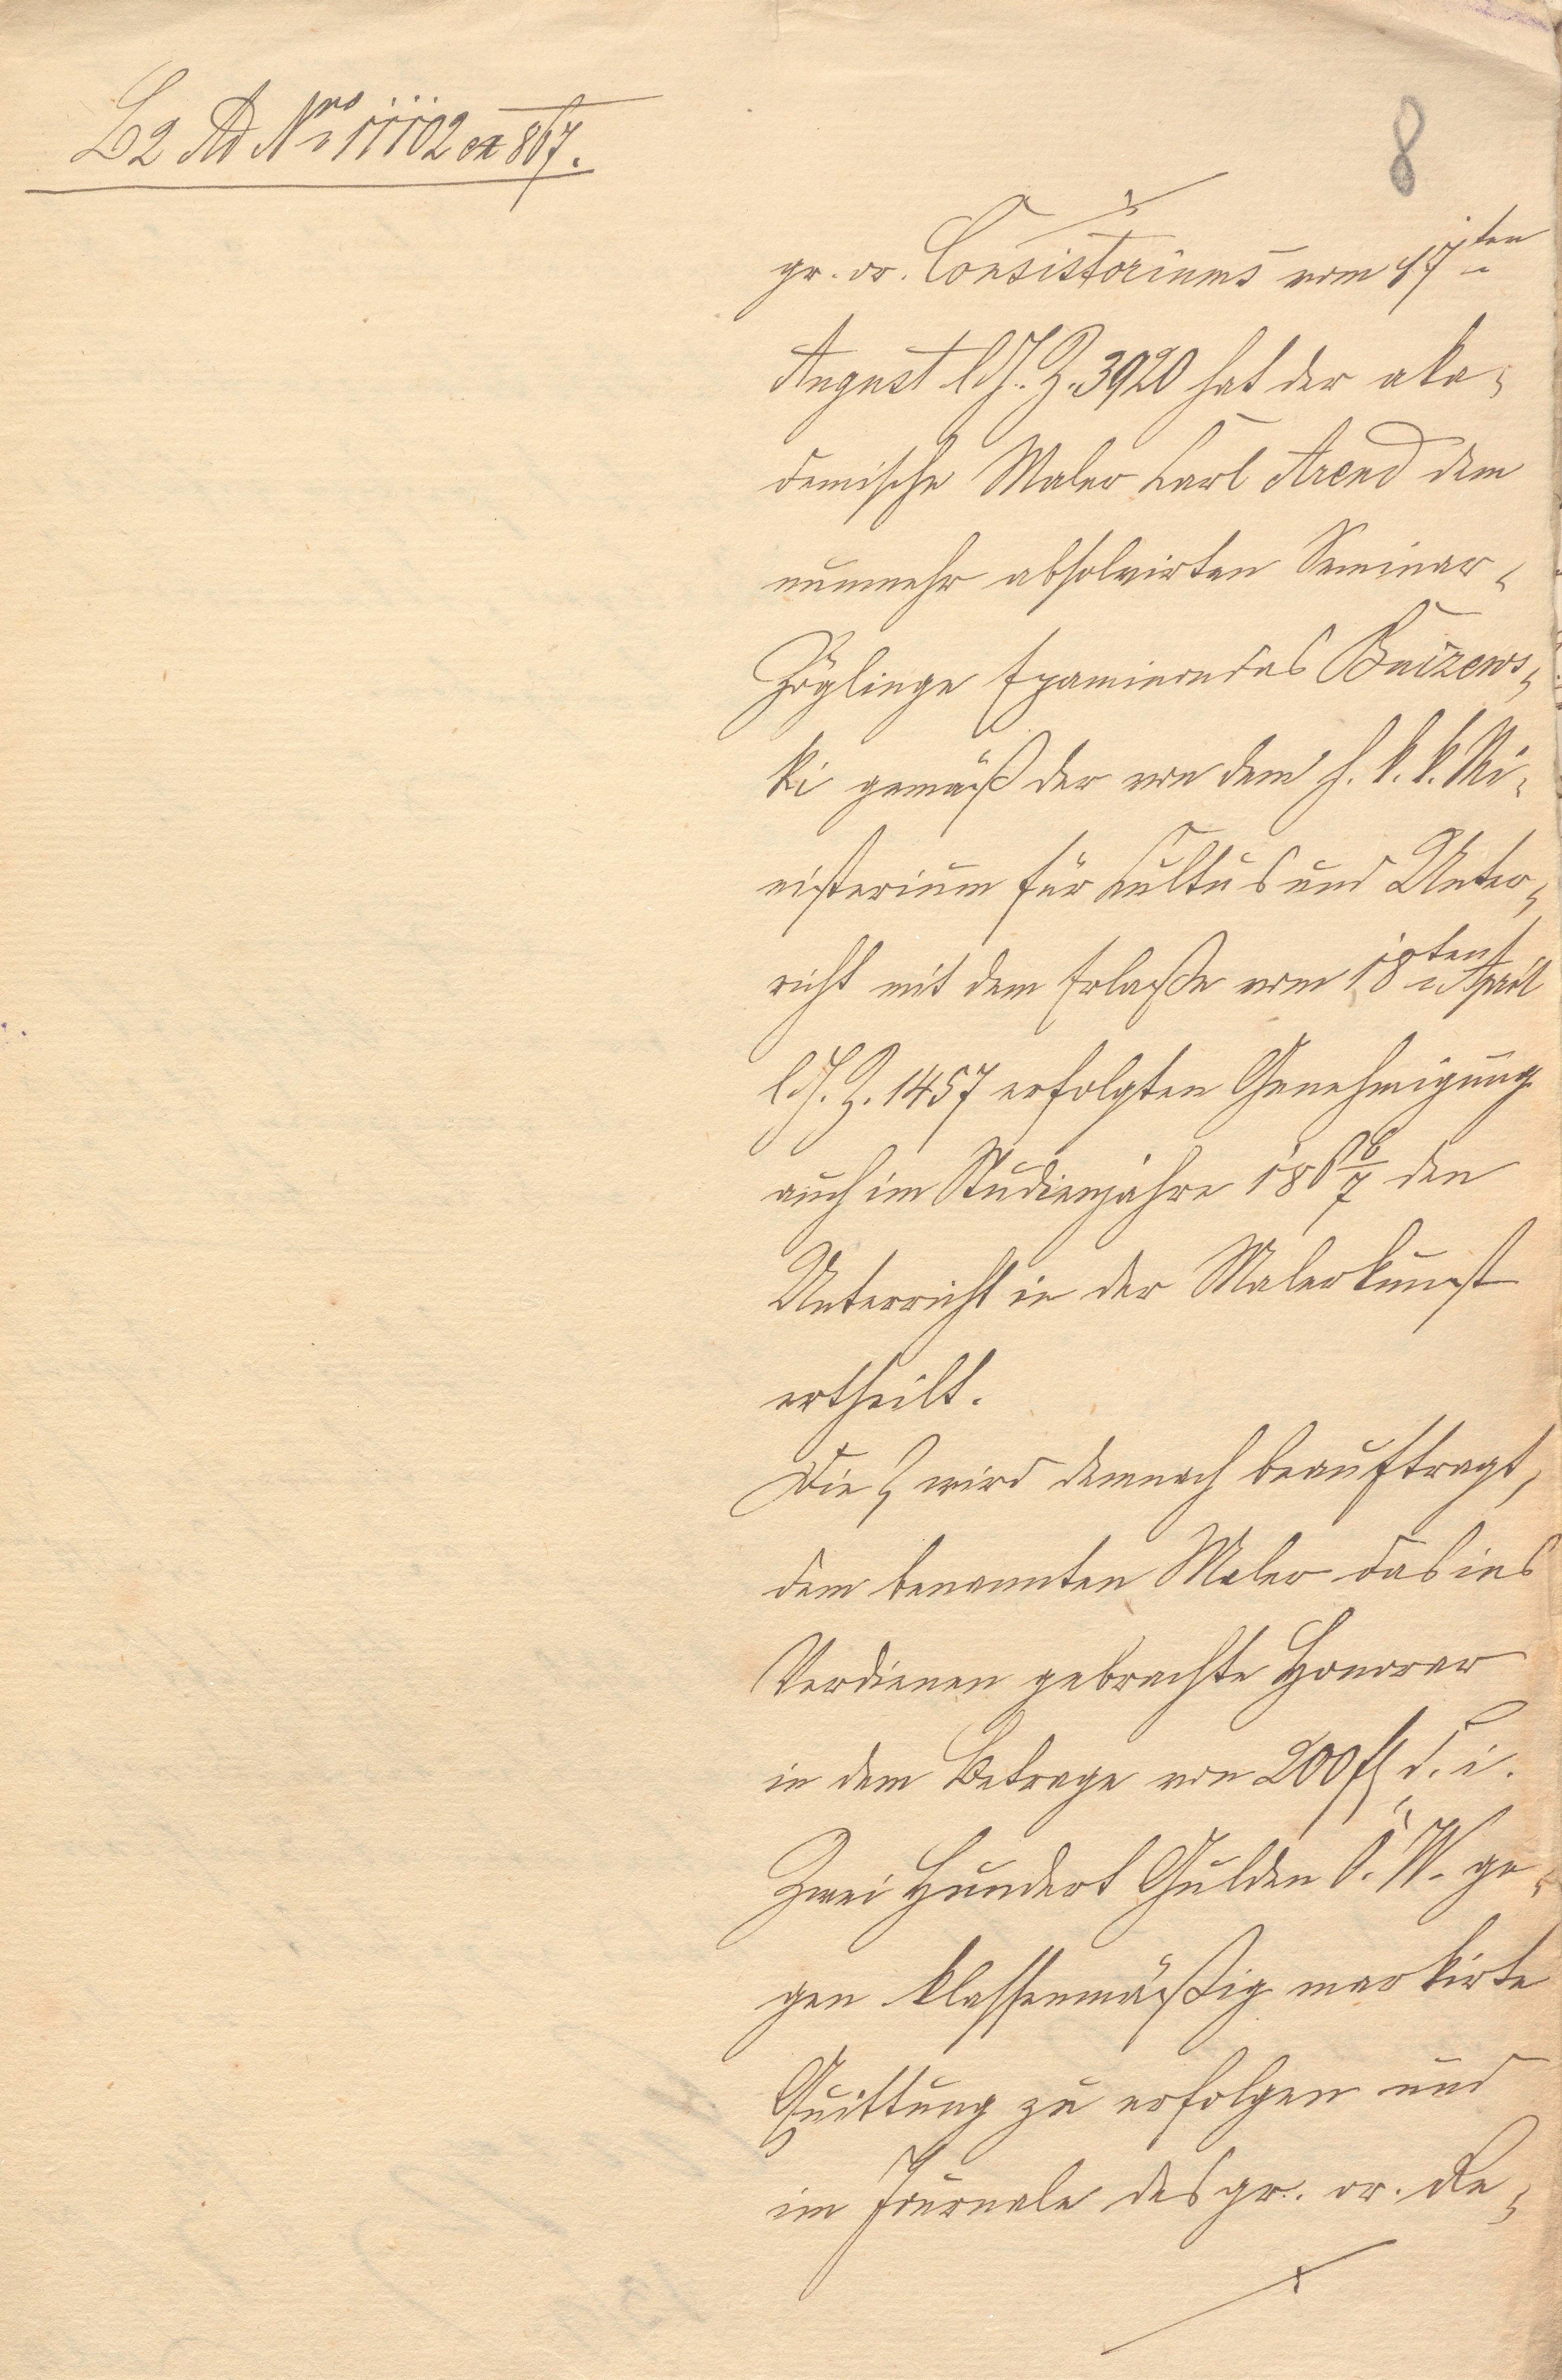 L2 Ad Nro 11102 ex 867.
8
gr. or. Consistoriums vom 17ten
August l. J. Z. 3920 hat der aka-
demische Maler Carl Arend dem
nunmehr absolvirten Seminar-
Zöglinge Epaminondas Bucrews-
ki gemäß der von dem h. k. k. Mi-
nisterium für Cultus und Unter-
richt mit dem Erlaße vom 18ten April
l. J. Z. 1457 erfolgten Genehmigung
auch im Studienjahre 186 6/7 den
Unterricht in der Malerkunst
ertheilt.
Die wird demnach beauftragt,
dem benannten Maler das ins
Verdienen gebrachte Honorar
in dem Betrage von 200 fl d. i.
Zwei Hundert Gulden ö. W. ge-
gen klassenmäßig markirte
Quittung zu erfolgen und
im Journale des gr. or. Re-